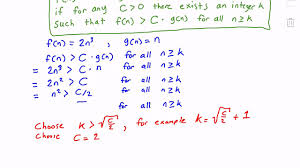 if for any C>0 there exists an integer k
such that f(n) > C · g(n) for all n ≥ k
f(n) = 2n³ , g(n) = n
f(n) > C · g(n) for all n ≥ k
= 2n³ > C · n for all n ≥ k
= 2n² > C for all n ≥ k
= n² > C/2 for all n ≥ k
for all n ≥ k
Choose k > √C/2 , for example k = √C/2 + 1
Choose C = 2